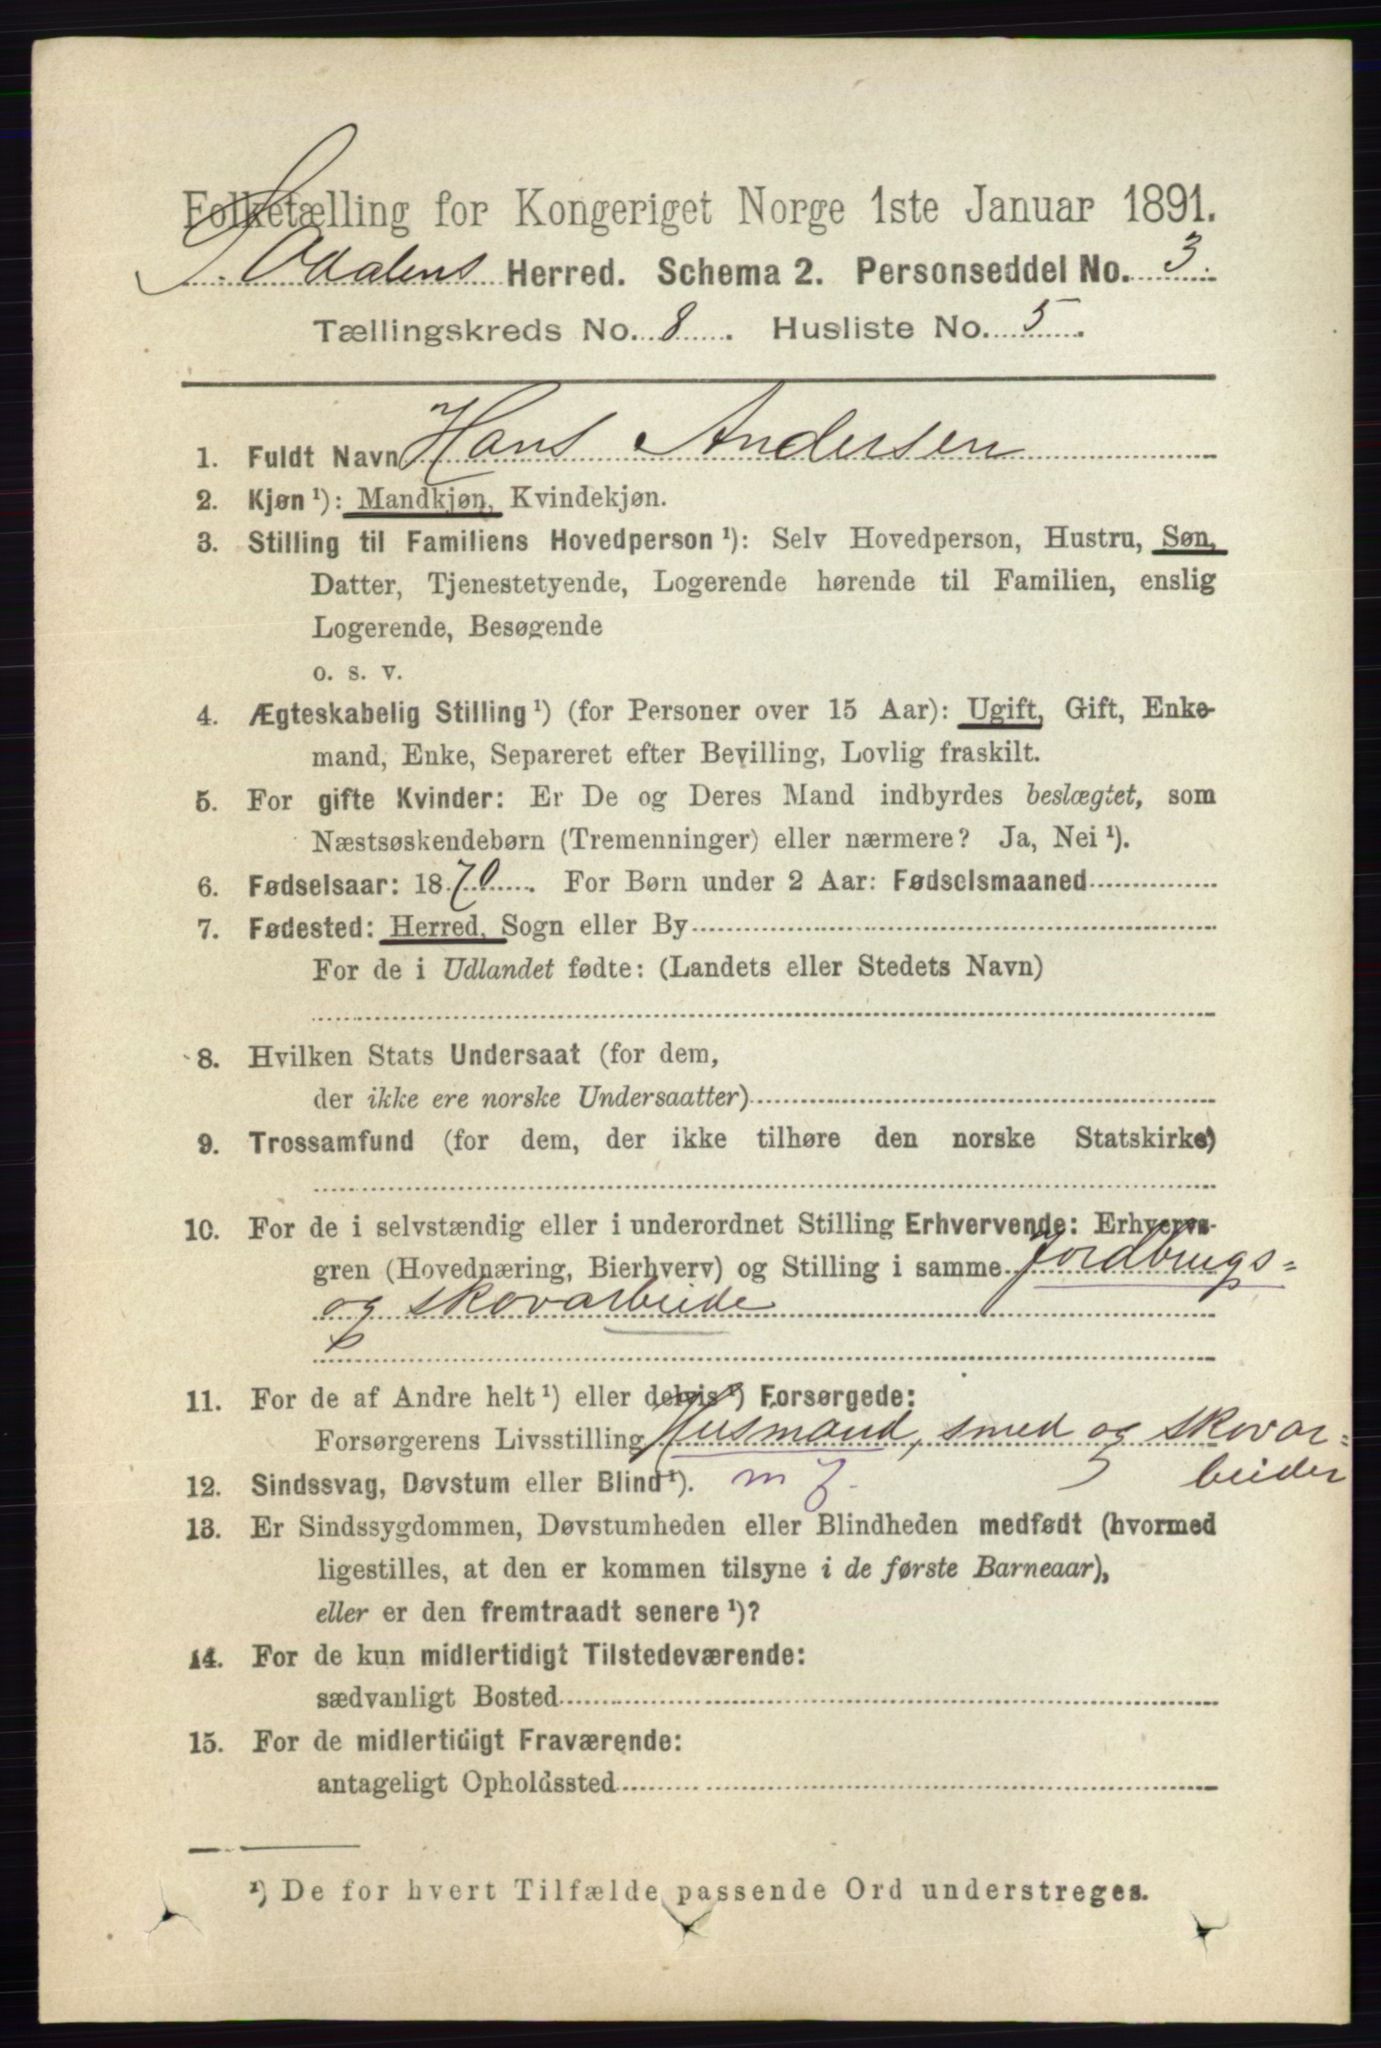 Folketælling for Kongeriget Norge 1ste Januar 1891.
S. Odalens Herred. Schema 2. Personseddel No. 3.
Tællingskreds No. 8. Husliste No. 5.
1. Fuldt Navn Hans Andersen
2. Kjøn ¹): Mandkjøn, Kvindekjøn.
3. Stilling til Familiens Hovedperson ¹): Selv Hovedperson, Hustru, Søn,
Datter, Tjenestetyende, Logerende hørende til Familien, enslig
Logerende, Besøgende
o. s. v.
4. Ægteskabelig Stilling ¹) (for Personer over 15 Aar): Ugift, Gift, Enke-
mand, Enke, Separeret efter Bevilling, Lovlig fraskilt.
5. For gifte Kvinder: Er De og Deres Mand indbyrdes beslægtet, som
Næstsøskendebørn (Tremenninger) eller nærmere? Ja, Nei ¹).
6. Fødselsaar: 1870. For Børn under 2 Aar: Fødselsmaaned
7. Fødested: Herred, Sogn eller By
For de i Udlandet fødte: (Landets eller Stedets Navn)
8. Hvilken Stats Undersaat (for dem,
der ikke ere norske Undersaatter)
9. Trossamfund (for dem, der ikke tilhøre den norske Statskirke)
10. For de i selvstændig eller i underordnet Stilling Erhvervende: Erhvervs-
gren (Hovednæring, Bierhverv) og Stilling i samme Jordbrugs-
og skovarbeide
11. For de af Andre helt ¹) eller delvis ¹) Forsørgede:
Forsørgerens Livsstilling Husmand, smed og skovar-
beider
12. Sindssvag, Døvstum eller Blind ¹).
13. Er Sindssygdommen, Døvstumheden eller Blindheden medfødt (hvormed
ligestilles, at den er kommen tilsyne i de første Barneaar),
eller er den fremtraadt senere ¹)?
14. For de kun midlertidigt Tilstedeværende:
sædvanligt Bosted
15. For de midlertidigt Fraværende:
antageligt Opholdssted
¹) De for hvert Tilfælde passende Ord understreges.